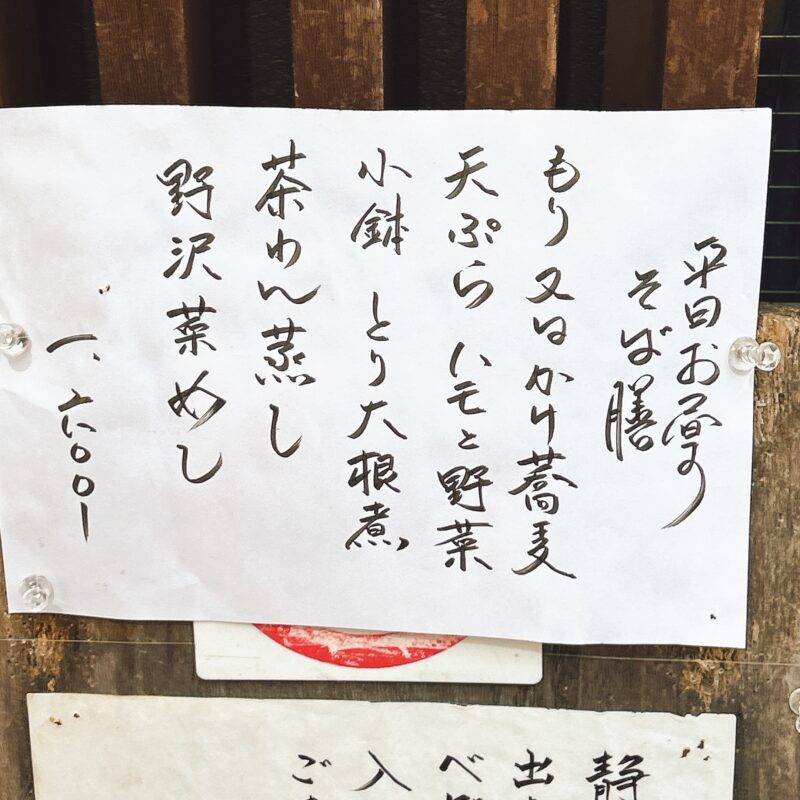 平日お昼の
そば膳
もり又はかけ蕎麦
天ぷら ハモと野菜
小鉢 とり大根煮
茶わん蒸し
野沢菜めし
一、六〇〇一
静
出
べ
入
ご